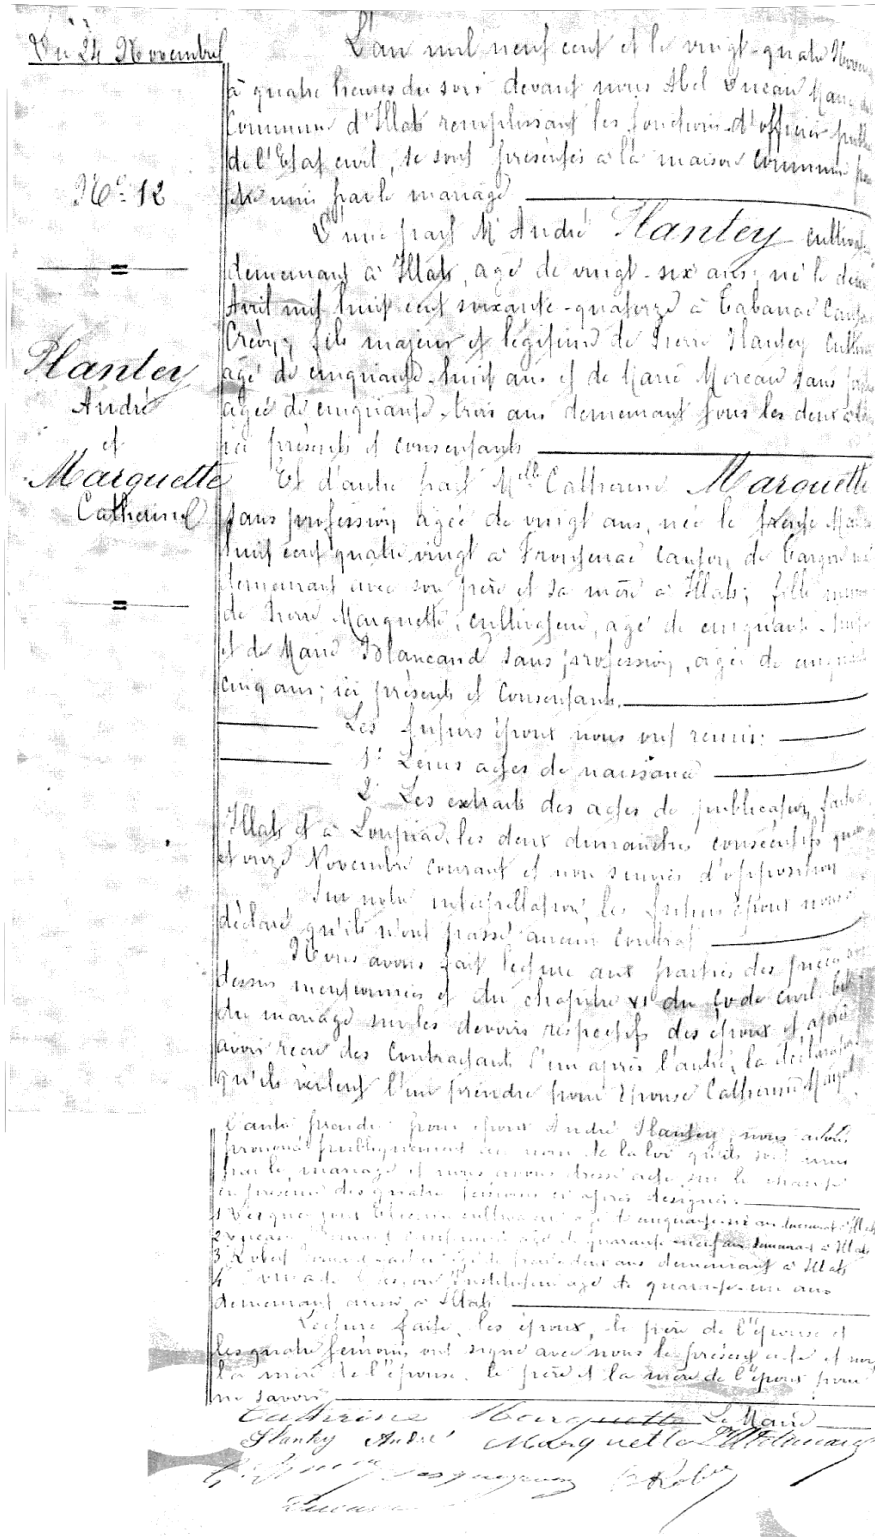 Du 24 Novembre
N° 12
Plantey
André
et
Marquette
Catherine
L'an mil neuf cent et le vingt-quatre Novem
à quatre heures du soir devant nous Abel Ducau Maire de
Commune d'Illats remplissant les fonctions d'officier public
de l'Etat civil, se sont présentés à la maison commune pour
être unis par le mariage
D'une part Mr André Plantey cultivat
demeurant à Illats, agé de vingt-six ans, né le deux
Avril mil huit cent soixante-quatorze à Tabanac Canton
Créon, fils majeur et légitime de Pierre Plantey cultiv
agé de cinquante-huit ans et de Marie Moreau sans prof
agée de cinquante-trois ans demeurant tous les deux à
ici présents et consentants
Et d'autre part Melle Catherine Marquette
sans profession agée de vingt ans, née le trente Mai
huit cent quatre-vingt à Frontenac canton de Targon
demeurant avec son père et sa mère à Illats; fille mineure
de Pierre Marquette, cultivateur, agé de cinquante-
et de Marie Blancand sans profession, agée de cinquante
cinq ans; ici présents et consentants.
Les futurs époux nous ont remis:
1° Leurs actes de naissance
2° Les extraits des actes de publication faites
Illats et à Loupiac, les deux dimanches consécutifs quatre
et onze Novembre courant et non suivies d'opposition
Sur notre interpellation, les futurs époux nous
déclaré qu'ils n'ont passé aucun contrat
Nous avons fait lecture aux parties des pièces
dessus mentionnées et du chapitre VI du Code civil
du mariage sur les devoirs respectifs des époux et après
avoir reçu des Contractants l'un après l'autre, la déclaration
qu'ils veulent l'un prendre pour épouse Catherine Marquet
l'autre prendre pour époux André Plantey, nous avons
prononcé publiquement au nom de la loi qu'ils sont unis
par le mariage et nous avons dressé acte sur le champ
en présence des quatre témoins ci après désignés.
1 cultivateur agé de cinquante-six ans demeurant à Illats
2 agé de quarante-neuf ans demeurant à Illats
3 Robert ans demeurant à Illats
4 Instituteur agé de quarante-un ans
demeurant aussi à Illats
Lecture faite, les époux, le père de l'épouse et
les quatre témoins ont signé avec nous le présent acte et non
la mère de l'épouse, le père et la mère de l'époux pour
ne savoir
Catherine Marquette Le Maire
Plantey André Marquette
Rob